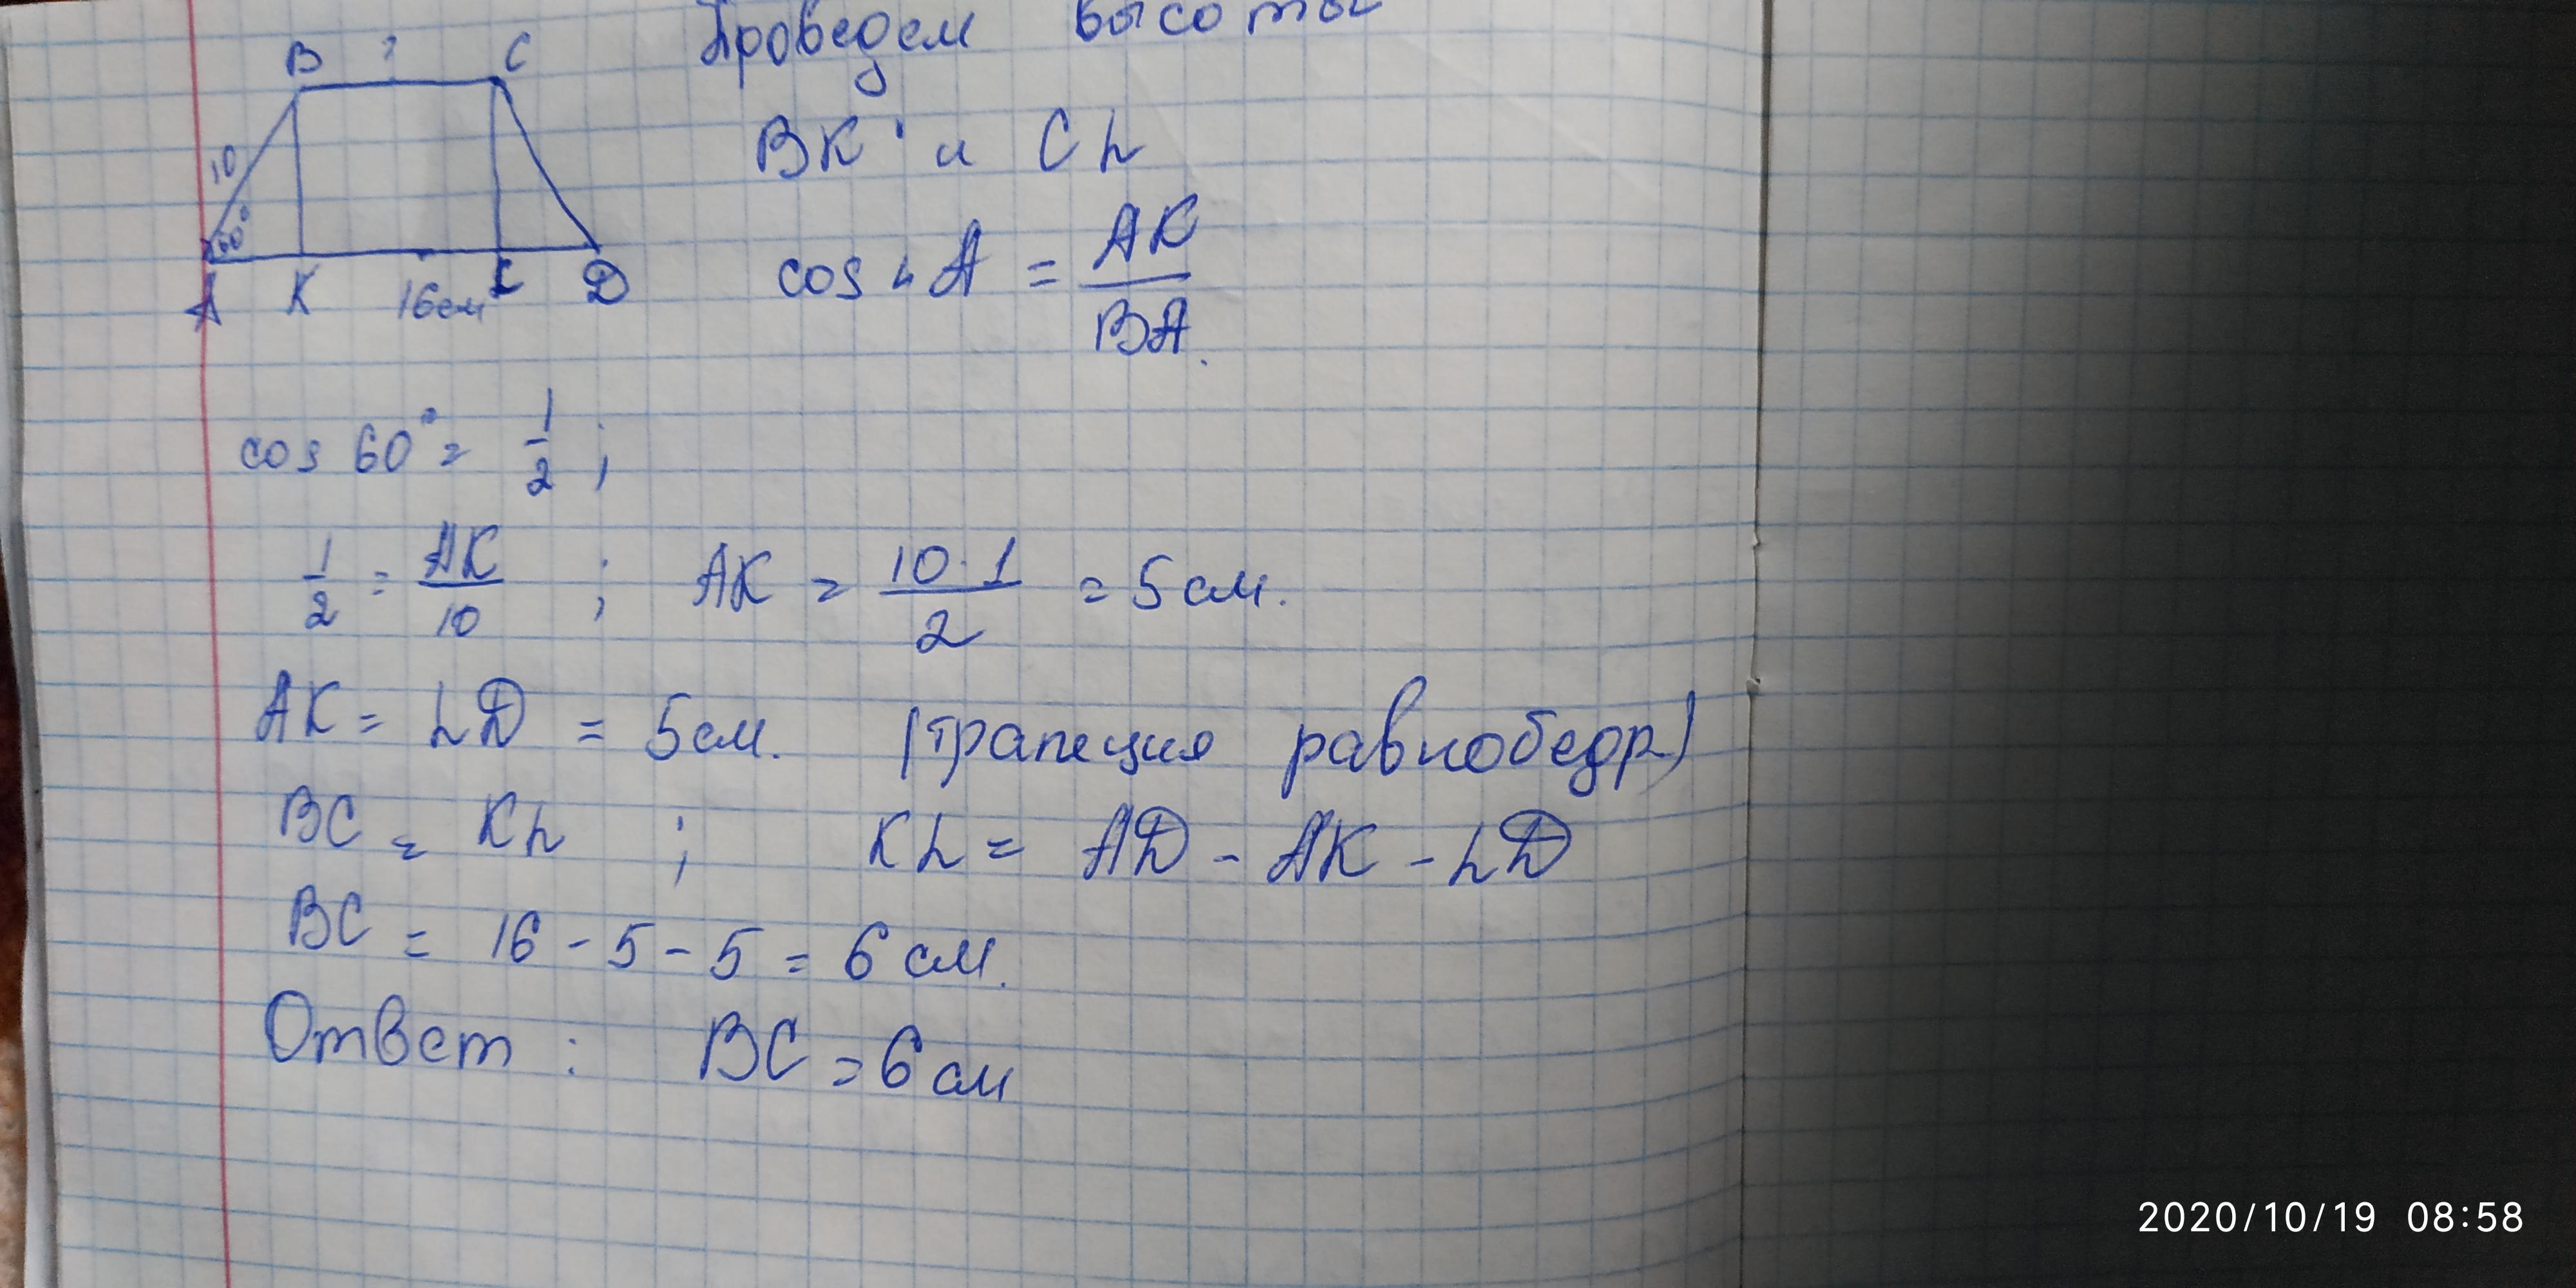 B ? C
10
60°
A K 16см L D
Проведем высоты
BK и CL
cos ∠A = AK/BA.
cos 60° = 1/2 ;
1/2 = AK/10 ; AK = 10·1/2 = 5см.
AK = LD = 5см. (трапеция равнобедр)
BC = KL ; KL = AD - AK - LD
BC = 16 - 5 - 5 = 6 см.
Ответ : BC = 6 см
2020/10/19 08:58